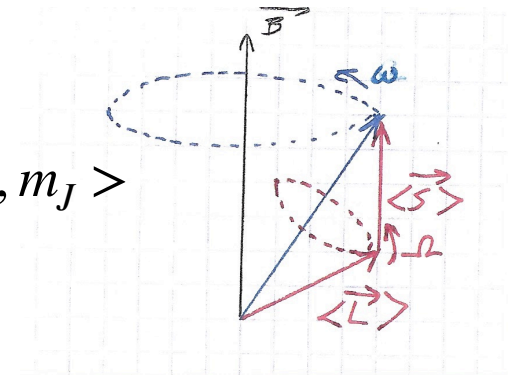 B
ω
, m_J >
<S>
Ω
<L>